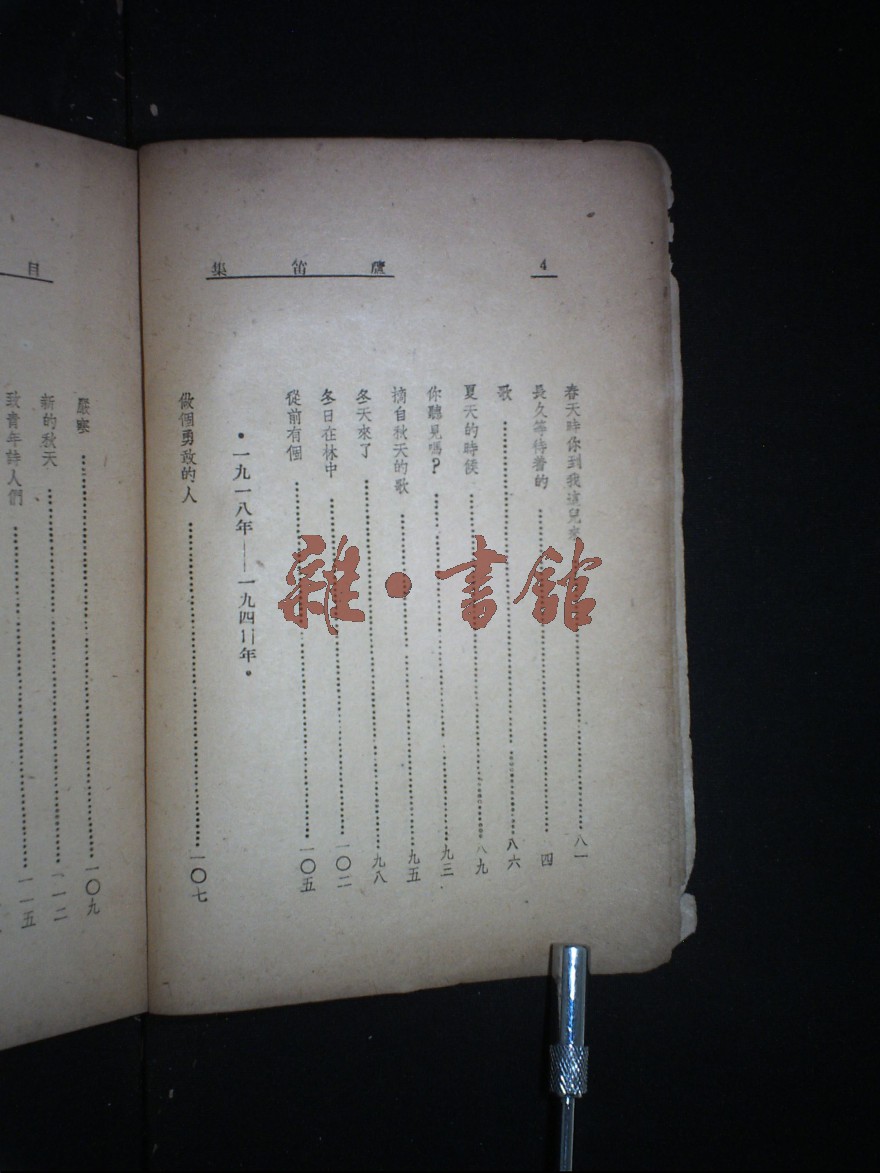 4
蘆笛集
春天時你到我這兒來…………八一
長久等待着的…………四
歌…………八六
夏天的時候…………八九
你聽見嗎?…………九三
摘自秋天的歌…………九五
冬天來了…………九八
冬日在林中…………一〇二
從前有個…………一〇五
•一九一八年——一九四一年•
做個勇敢的人…………一〇七
目
嚴寒…………一〇九
新的秋天…………一一二
致青年詩人們…………一一五
雜•書館